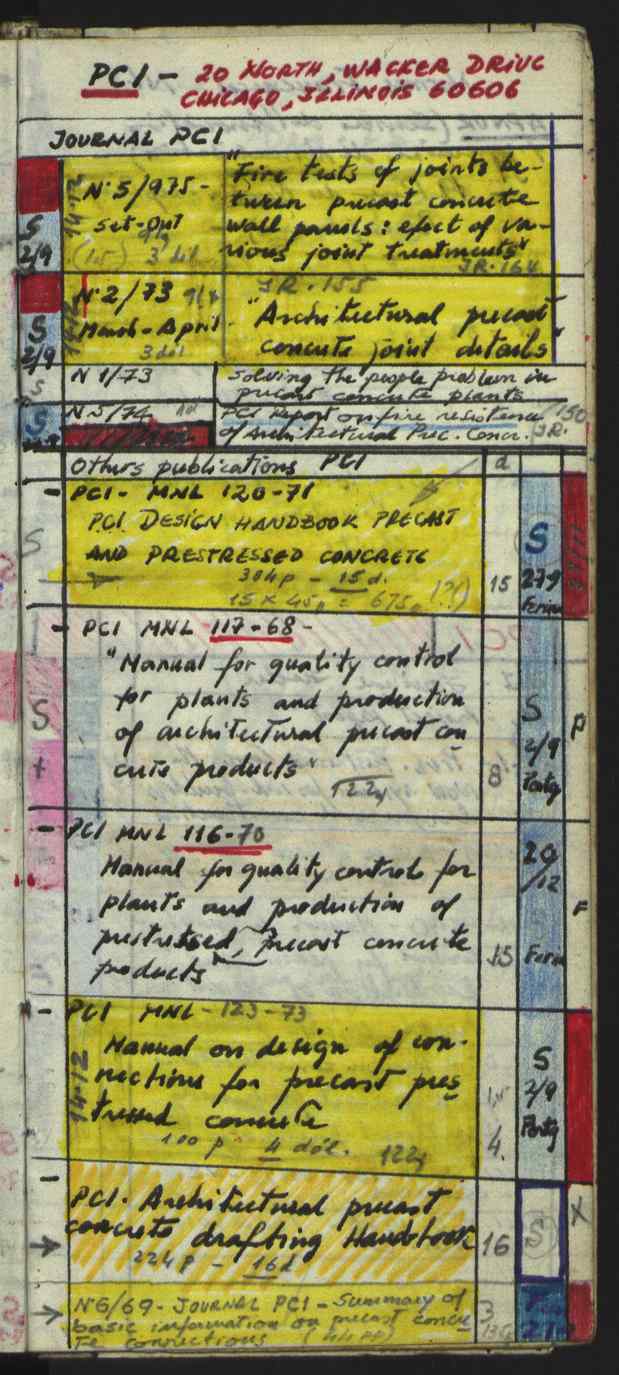 PCI - 20 NORTH, WACKER DRIVE
CHICAGO, ILLINOIS 60606
JOURNAL PCI
14-12
N·5/975-
Set-Out
3 dól
S
2/9
"Fire tests of joints be-
tween precast concrete
wall panels: efect of va-
rious joint treatments"
JR·164
N·2/73
March-April
3 dól
S
2/9
JR·155
"Architectural precast
concrete joint details"
N 1/73
S
Solving the people problem in
precast concrete plants
N 5/74
S
PCI Report on fire resistence 150
of Architectural Prec. Concr. JR.
Others publications PCI d
- PCI- MNL 120-71
PCI DESIGN HANDBOOK PRECAST
AND PRESTRESSED CONCRETE
304p - 15 d.
15 × 45p = 675p (?)
15
S
S
279
- PCI MNL 117-68-
"Manual for quality control
for plants and production
of architectural precast con
crete products"
122p
8
S
+
S
2/9
P
- PCI MNL 116-70
Manual for quality controls for
plants and production of
prestressed, precast concrete
products"
15
20
/12
F
- PCI MNL-123-73
14-12
Manual on design of con-
nections for precast pres
tressed concrete
100 p 4 dól. 122p
4.
S
2/9
- PCI. Architectural precast
concrete drafting Handbook
224p - 16d
16
S
X
N·6/69- JOURNAL PCI - Summary of
basic information on precast concre-
te connections (44 pp)
3